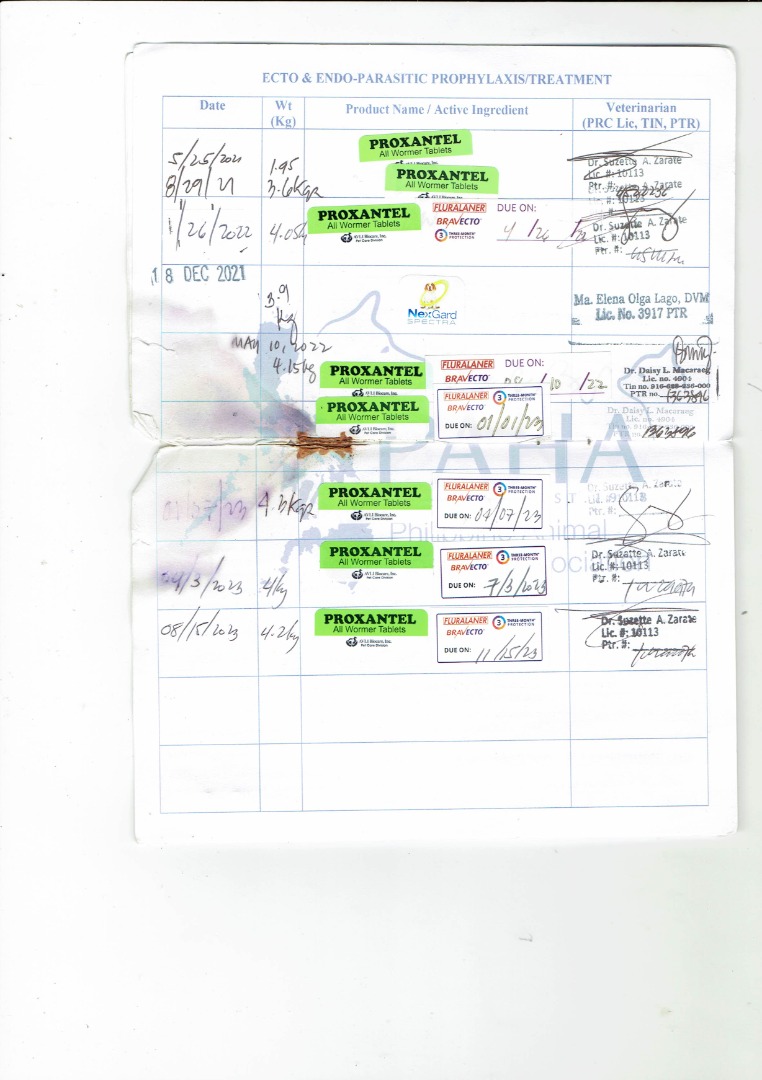 ECTO & ENDO-PARASITIC PROPHYLAXIS/TREATMENT
Date Wt (Kg) Product Name / Active Ingredient Veterinarian (PRC Lic, TIN, PTR)
5/25/2021 1.95 PROXANTEL All Wormer Tablets Dr. Suzette A. Zarate
Lic #: 10113
Ptr.
8/29/21 3.6Kgr PROXANTEL All Wormer Tablets Zarate
#: 10113
1/26/2022 4.05k PROXANTEL All Wormer Tablets FLURALANER BRAVECTO 3 THREE-MONTH PROTECTION DUE ON: 4/26/22 Dr. Suzette A. Zarate
Lic. #: 10113
Ptr. #:
18 DEC 2021 3.9 kg NexGard SPECTRA Ma. Elena Olga Lago, DVM
Lic. No. 3917 PTR
MAY 10, 2022 4.15kg PROXANTEL All Wormer Tablets FLURALANER BRAVECTO DUE ON: /10/22 Dr. Daisy L. Macaraeg
Lic. no. 4904
PTR no. 1363896
PROXANTEL All Wormer Tablets FLURALANER BRAVECTO 3 THREE-MONTH PROTECTION DUE ON: 01/01/23 Dr. Daisy L. Macaraeg
1363896
PAHA
Philippine Animal
/23 4.3Kgr PROXANTEL All Wormer Tablets FLURALANER BRAVECTO 3 THREE-MONTH PROTECTION DUE ON: 04/07/23 A. Zarate
Ptr. #:
04/3/2023 4kg PROXANTEL All Wormer Tablets FLURALANER BRAVECTO 3 THREE-MONTH PROTECTION DUE ON: 7/3/2023 Dr. Suzette A. Zarate
Lic. #: 10113
Ptr. #:
08/15/2023 4.2kg PROXANTEL All Wormer Tablets FLURALANER BRAVECTO 3 THREE-MONTH PROTECTION DUE ON: 11/15/23 Dr. Suzette A. Zarate
Lic. #: 10113
Ptr. #: